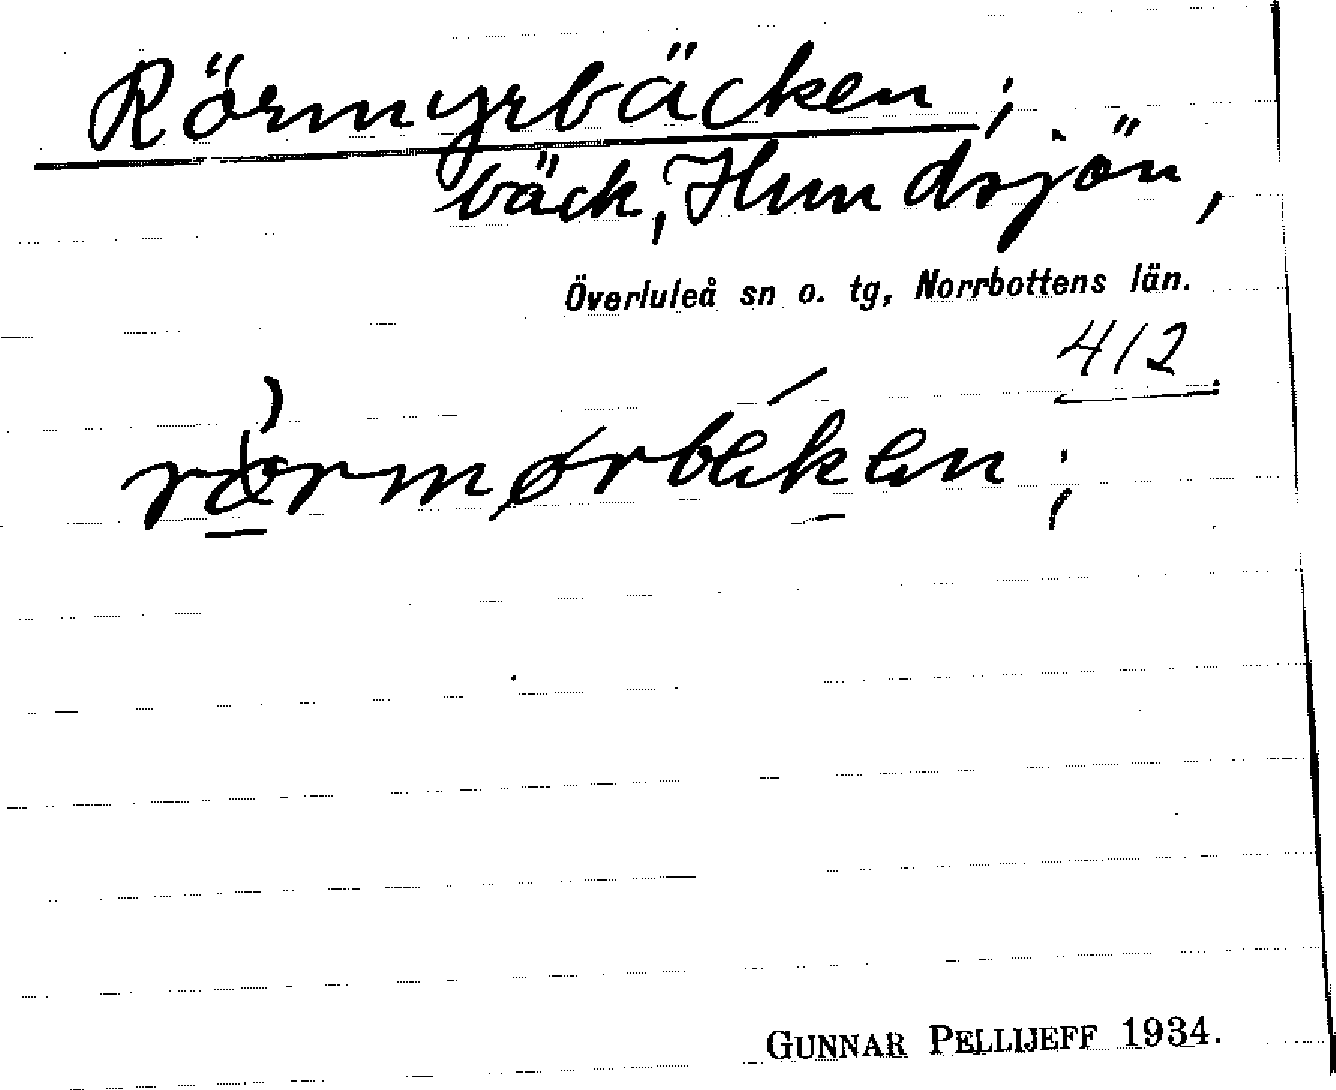 Rörmyrbäcken;
bäck, Hundsjön,
Överluleå sn o. tg, Norrbottens län.
412.
GUNNAR PELLIJEFF 1934.